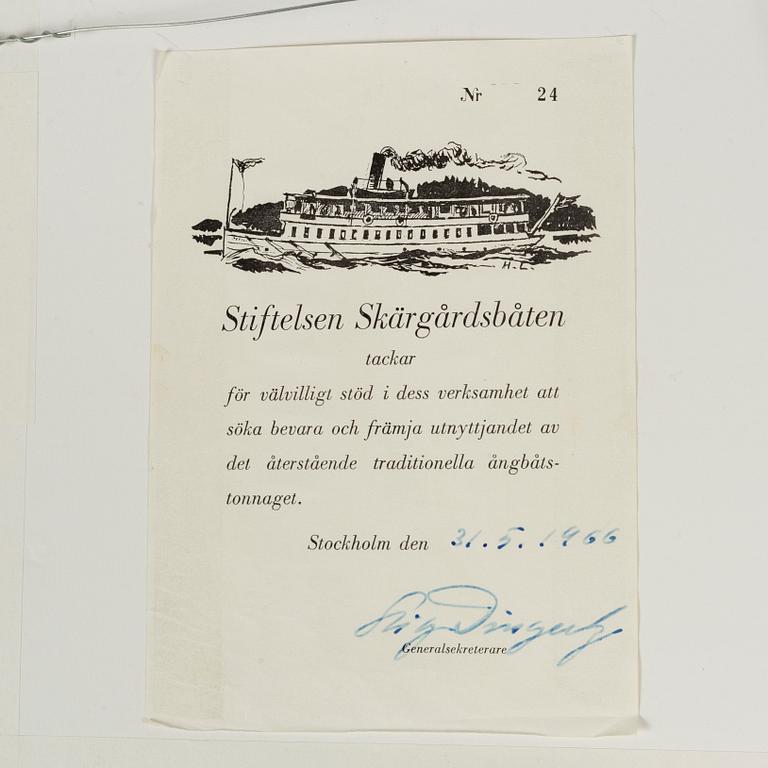 Nr 24
H-L
Stiftelsen Skärgårdsbåten
tackar
för välvilligt stöd i dess verksamhet att
söka bevara och främja utnyttjandet av
det återstående traditionella ångbåts-
tonnaget.
Stockholm den 31.5.1966
Stig
Generalsekreterare